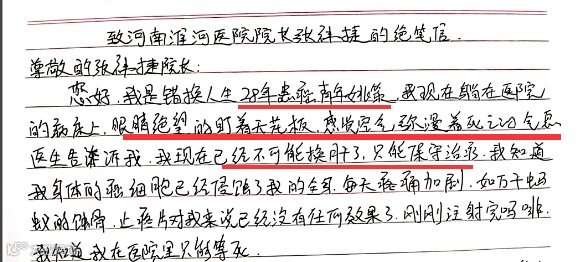 致河南淮河医院院长张祎捷的绝笔信.
尊敬的张祎捷院长:
您好.我是错换人生28年患癌青年姚策.我现在躺在医院
的病床上,眼睛绝望的盯着天花板,感觉空气弥漫着死亡的气息
医生告诉我,我现在已经不可能换肝了,只能保守治疗.我知道
我身体的癌细胞已经侵蚀了我的全身.每天疼痛加剧,如万千蚂
蚁的体降.止疼片对我来说已经没有任何效果了.刚刚注射完吗啡.
我知道我在医院里只能等死.